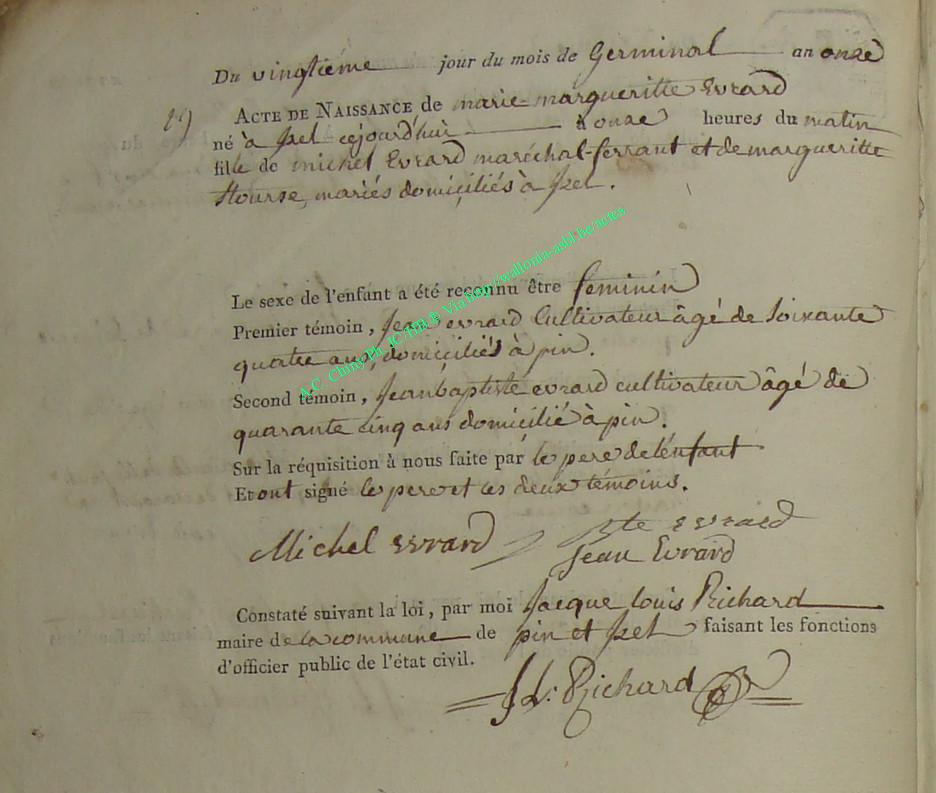 Du vingtieme jour du mois de Germinal an onze
19 ACTE DE NAISSANCE de marie margueritte Evrard
né à Izel cejourd'hui à onze heures du matin
fille de michel Evrard maréchal-ferrant et de margueritte
mariés domiciliés à Izel.
Le sexe de l'enfant a été reconnu être feminin
Premier témoin, Jean evrard Cultivateur âgé de Soixante
quatre ans, domiciliés à pin.
Second témoin, Jeanbaptiste evrard cultivateur âgé de
quarante cinq ans domicilié à pin.
Sur la réquisition à nous faite par le pere de l'enfant
Et ont signé le pere et les deux témoins.
Michel evrard
evrard
Jean Evrard
Constaté suivant la loi, par moi Jacque Louis Richard
maire de la commune de pin et Izel faisant les fonctions
d'officier public de l'état civil.
J L: Richard
A.C. Chiny Ph. JC/HM ® Via http://wallonia-asbl.be/actes